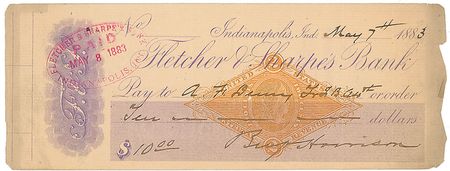 No
Indianapolis, Ind. May 7th 1883
FLETCHER & SHARPE'S BANK
PAID
MAY 8 1883
INDIANAPOLIS, IND.
Fletcher & Sharpe's Bank
Pay to A. F. Denny or order
Ten dollars
$10.00
Benj Harrison